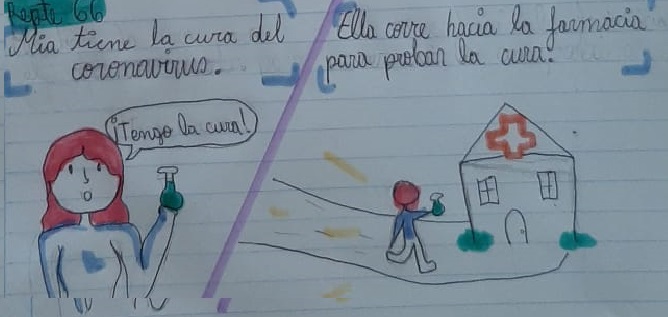 Repte 66
Mia tiene la cura del
coronavirus.
¡Tengo la cura!
Ella corre hacia la farmacia
para probar la cura.